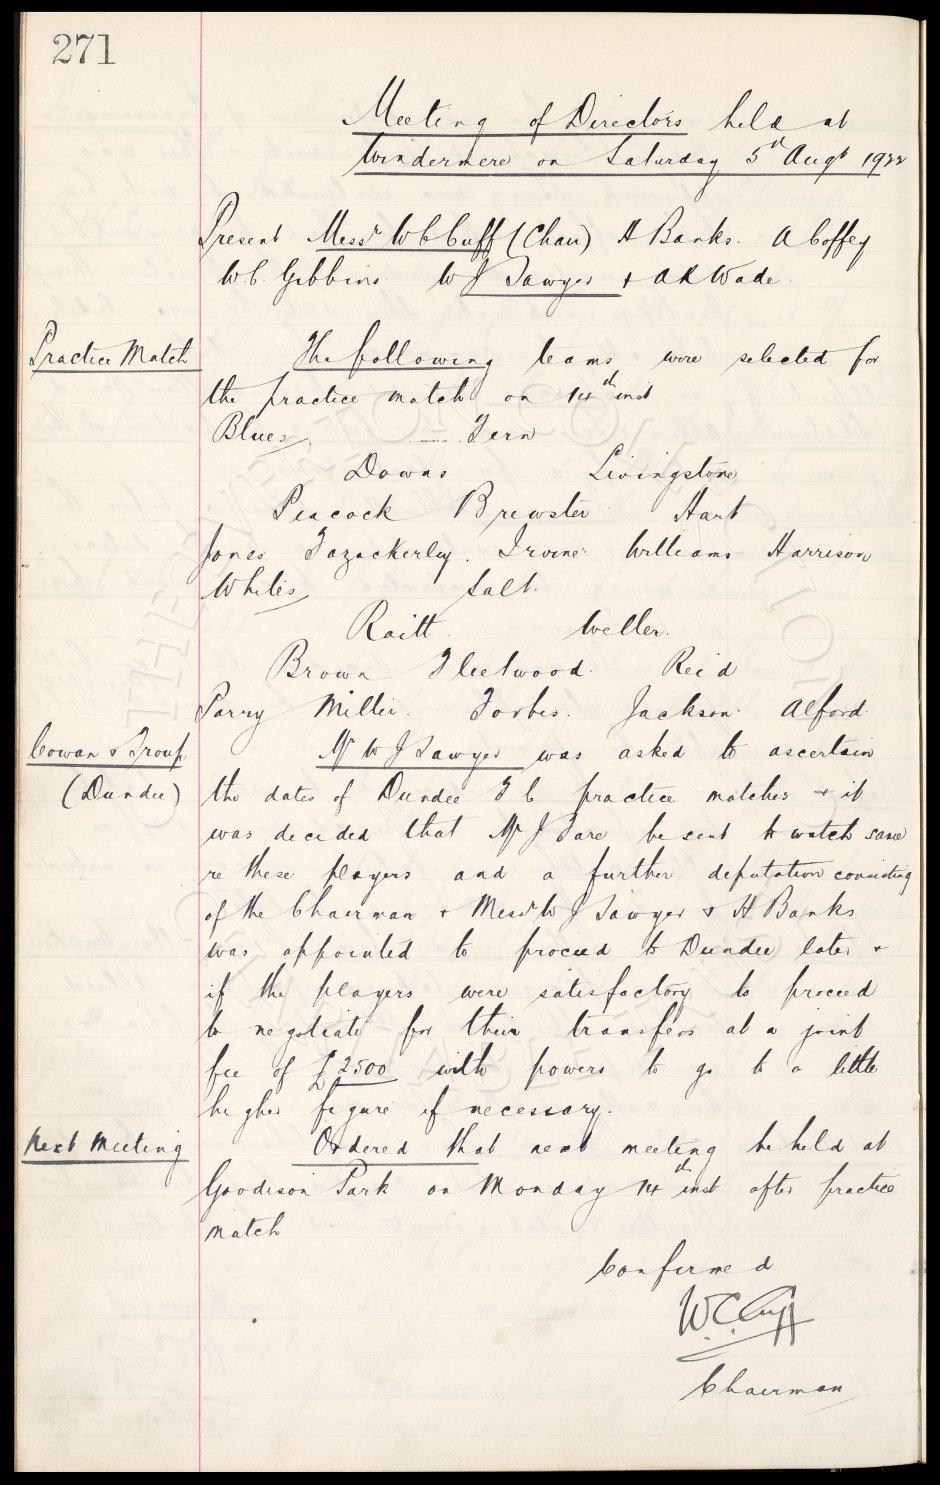 271
Meeting of Directors held at
Windermere on Saturday 5th Augt 1922
Present Messrs W C Cuff (Chair) H Banks. A Coffey
W.C. Gibbins W J Sawyer + A R Wade.
Practice Match
The following teams were selected for
the practice match on 14th inst
Blues. Fern
Downs Livingstone
Peacock Brewster Hart
Jones Fazackerley. Irvine. Williams Harrison
Whites Salt.
Raitt. Weller.
Brown Fleetwood. Reid
Parry Miller. Forbes. Jackson. Alford.
Cowan & Troup
(Dundee)
Mr W J Sawyer was asked to ascertain
the dates of Dundee F C practice matches + it
was decided that Mr J Fare be sent to watch same
re these players and a further deputation consisting
of the Chairman + Messrs W J Sawyer & H Banks
was appointed to proceed to Dundee later +
if the players were satisfactory to proceed
to negotiate for their transfers at a joint
fee of £2500 with powers to go to a little
higher figure if necessary.
Next Meeting
Ordered that next meeting be held at
Goodison Park on Monday 14th inst after practice
match
Confirmed
W.C. Cuff
Chairman